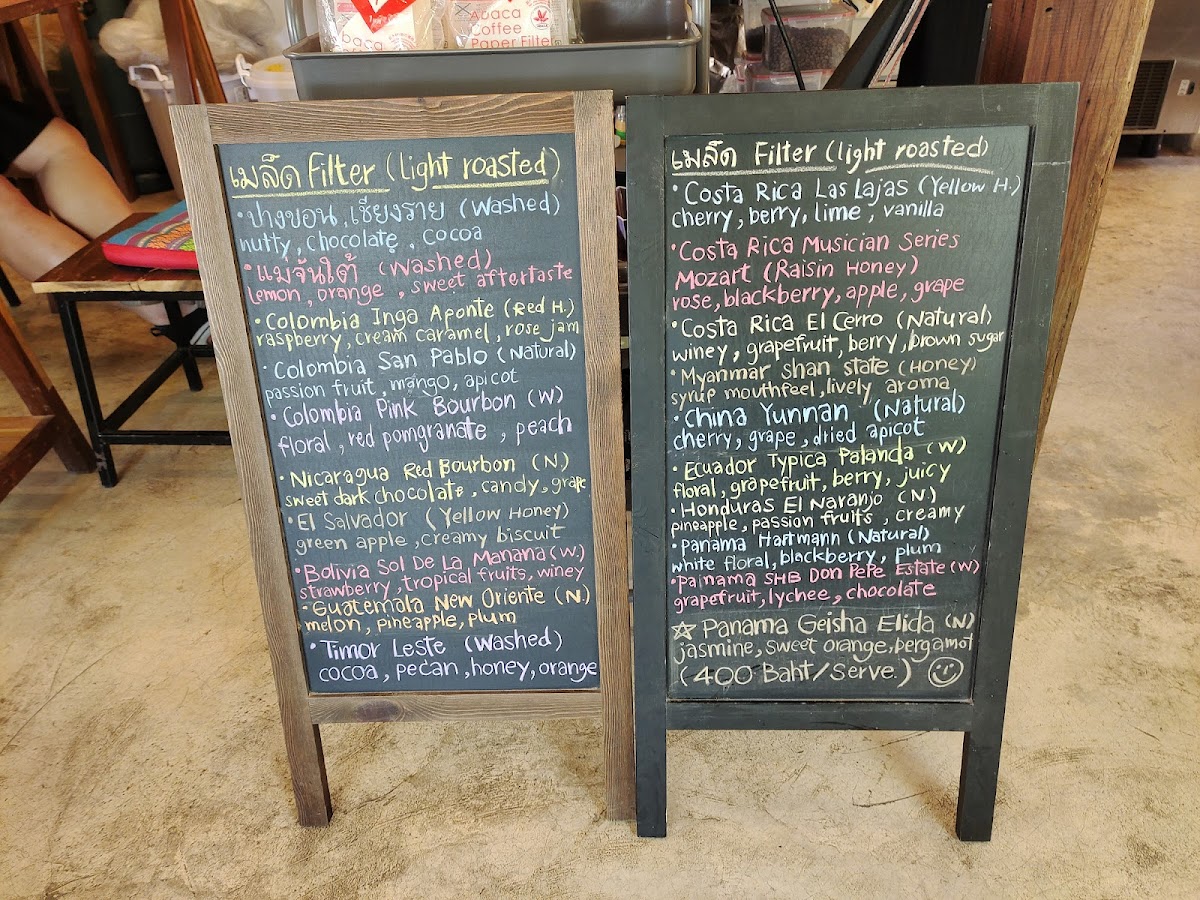 Abaca
Coffee
Paper Filter
เมล็ด Filter (light roasted)
• ปางขอน, เชียงราย (Washed)
nutty, chocolate, cocoa
• แม่จันใต้ (Washed)
lemon, orange, sweet aftertaste
• Colombia Inga Aponte (Red H.)
raspberry, cream caramel, rose jam
• Colombia San Pablo (Natural)
passion fruit, mango, apicot
• Colombia Pink Bourbon (W)
floral, red pomgranate, peach
• Nicaragua Red Bourbon (N.)
sweet dark chocolate, candy, grape
• El Salvador (Yellow Honey)
green apple, creamy biscuit
• Bolivia Sol De La Manana (W.)
strawberry, tropical fruits, winey
• Guatemala New Oriente (N.)
melon, pineapple, plum
• Timor Leste (Washed)
cocoa, pecan, honey, orange
เมล็ด Filter (light roasted)
• Costa Rica Las Lajas (Yellow H.)
cherry, berry, lime, vanilla
• Costa Rica Musician Series
Mozart (Raisin Honey)
rose, blackberry, apple, grape
• Costa Rica El Cerro (Natural)
winey, grapefruit, berry, brown sugar
• Myanmar Shan state (Honey)
syrup mouthfeel, lively aroma
• China Yunnan (Natural)
cherry, grape, dried apicot
• Ecuador Typica Palanda (W)
floral, grapefruit, berry, juicy
• Honduras El Naranjo (N.)
pineapple, passion fruits, creamy
• Panama Hartmann (Natural)
white floral, blackberry, plum
• Painama SHB Don Pepe Estate (W)
grapefruit, lychee, chocolate
☆ Panama Geisha Elida (N)
jasmine, sweet orange, bergamot
(400 Baht/Serve.)